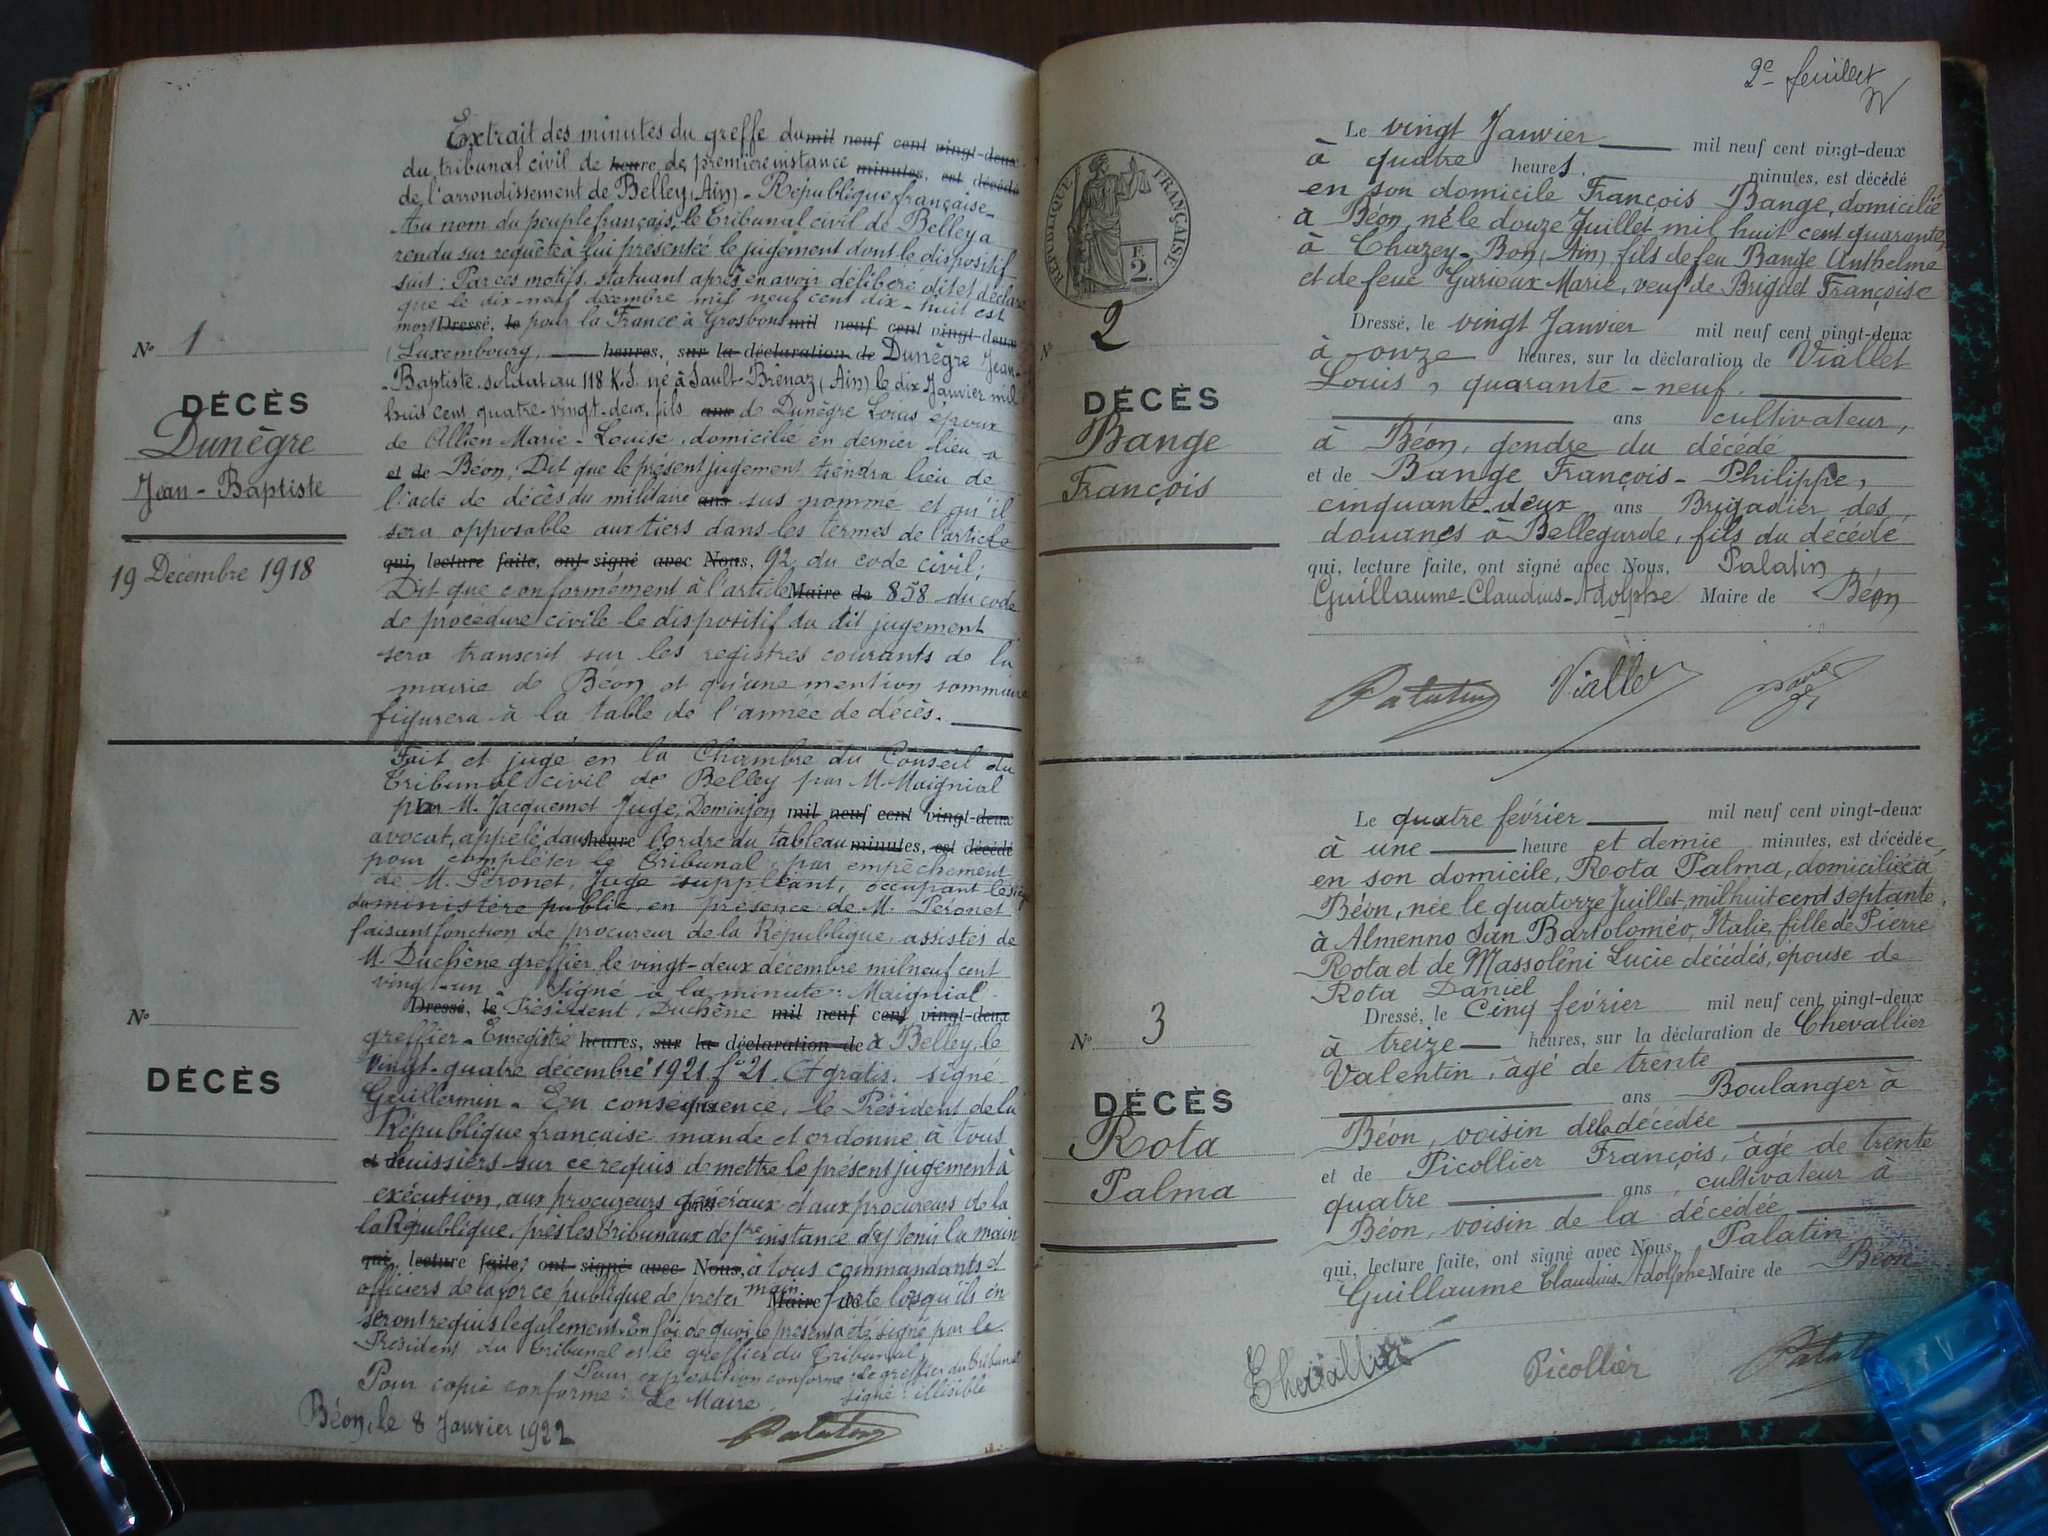 Extrait des minutes du greffe du mil neuf cent vingt-deux
du tribunal civil de heure de première instance minutes, est décédé
de l'arrondissement de Belley (Ain) - République française -
Au nom du peuple français, le Tribunal civil de Belley a
rendu sur requête à lui présentée le jugement dont le dispositif
suit : Par ces motifs, statuant après en avoir délibéré dit et déclare
que le dix-neuf décembre mil neuf cent dix-huit est
mort Dressé, le pour la France à Grosbous mil neuf cent vingt-deux
(Luxembourg, heures, sur la déclaration de Dunègre Jean-
Baptiste, soldat au 118 né à Sault-Brénaz (Ain) le dix Janvier mil
huit cent quatre-vingt-deux, fils ans de Dunègre Louis époux
de Allien Marie-Louise, domicilié en dernier lieu à
et de Béon, Dit que le présent jugement tiendra lieu de
l'acte de décès du militaire ans sus nommé et qu'il
sera opposable aux tiers dans les termes de l'article
qui, lecture faite, ont signé avec Nous, 92 du code civil;
Dit que conformément à l'article Maire de 858 du code
de procédure civile le dispositif du dit jugement
sera transcrit sur les registres courants de la
mairie de Béon et qu'une mention sommaire
figurera à la table de l'année de décès.
N° 1
DÉCÈS
Dunègre
Jean-Baptiste
19 Décembre 1918
Fait et jugé en la Chambre du Conseil du
Tribunal civil de Belley par M. Maignial
M. Jacquemet Juge, Dominjon mil neuf cent vingt-deux
avocat, appelé dans heure l'ordre du tableau minutes, est décédé
pour compléter le Tribunal par empêchement
de M. Péronet, Juge suppléant, occupant le siège
du ministère public, en présence de M. Péronet
faisant fonction de procureur de la République, assistés de
M. Duchêne greffier le vingt-deux décembre mil neuf cent
ving-un - Signé à la minute : Maignial
Dressé, le Président, Duchêne mil neuf cent vingt-deux
greffier - Enregistré heures, sur la déclaration de à Belley, le
vingt-quatre décembre 1921 f° 21. gratis. signé
Guillermin - En conséquence, le Président de la
République française mande et ordonne à tous
et de huissiers sur ce requis de mettre le présent jugement à
exécution, aux procureurs généraux et aux procureurs de la
la République, près les tribunaux de 1re instance d'y tenir la main
qui, lecture faite, ont signé avec Nous, à tous commandants et
officiers de la force publique de prêter main Maire de forte lorsqu'ils en
seront requis légalement. En foi de quoi le présent a été signé par le
Président du tribunal et le greffier du Tribunal.
Pour expédition conforme : Le greffier du tribunal
Pour copie conforme : Le Maire. signé : illisible
Béon, le 8 Janvier 1922
Palatin
N°
DÉCÈS
2e feuillet
REPUBLIQUE FRANÇAISE
F. 2
Le vingt Janvier mil neuf cent vingt-deux
à quatre heures, minutes, est décédé
en son domicile François Bange, domicilié
à Béon, né le douze Juillet mil huit cent quarante,
à Chazey-Bon, (Ain) fils de feu Bange Anthelme
et de feue Garioux Marie, veuf de Briguet Françoise
Dressé, le vingt Janvier mil neuf cent vingt-deux
à onze heures, sur la déclaration de Viallet
Louis, quarante-neuf.
ans cultivateur,
à Béon, gendre du décédé
et de Bange François-Philippe,
cinquante-deux ans Brigadier des
douanes à Bellegarde, fils du décédé
qui, lecture faite, ont signé avec Nous, Palatin
Guillaume-Claudius-Adolphe Maire de Béon
Palatin Viallet Bange
N° 2
DÉCÈS
Bange
François
Le quatre février mil neuf cent vingt-deux
à une heure et demie minutes, est décédée
en son domicile, Rota Palma, domiciliée à
Béon, née le quatorze Juillet, mil huit cent septante,
à Almenno San Bartoloméo, Italie, fille de Pierre
Rota et de Massoleni Lucie décédés, épouse de
Rota Daniel
Dressé, le Cinq février mil neuf cent vingt-deux
à treize heures, sur la déclaration de Chevallier
Valentin, âgé de trente
ans Boulanger à
Béon, voisin de la décédée
et de Picollier François, âgé de trente
quatre ans, cultivateur à
Béon, voisin de la décédée
qui, lecture faite, ont signé avec Nous, Palatin
Guillaume Claudius-Adolphe Maire de Béon
Chevallier Picollier Palatin
N° 3
DÉCÈS
Rota
Palma